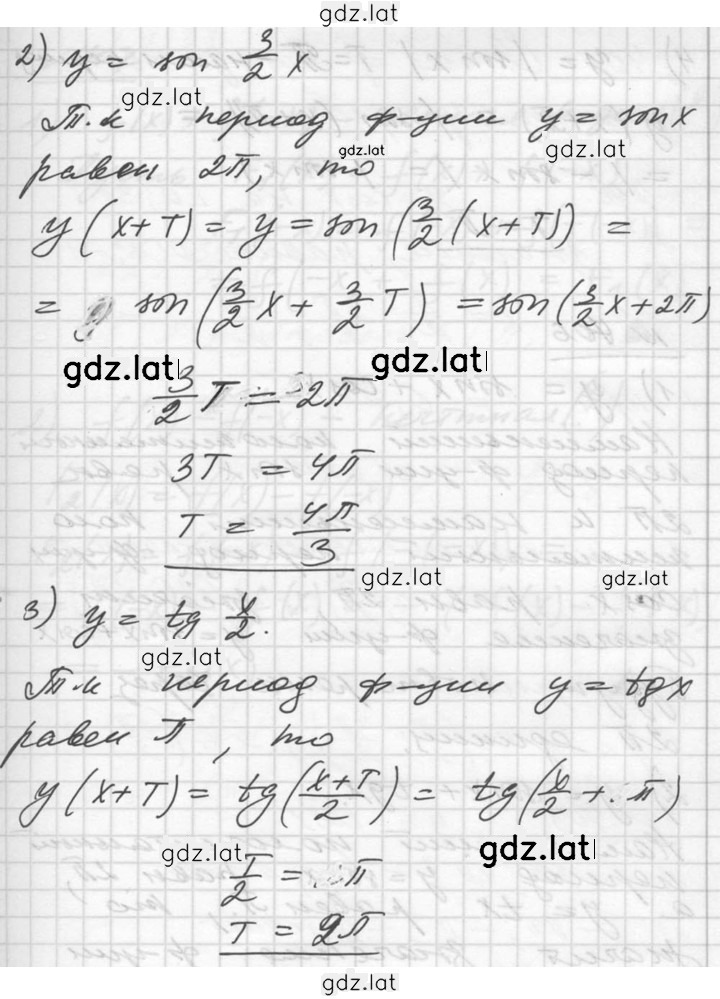 gdz.lat
2) y = sin 3/2 x
gdz.lat
Т.к период ф-ции y = sin x
gdz.lat
gdz.lat
равен 2π, то
y(x+T) = y = sin(3/2(x+T)) =
= sin(3/2x + 3/2T) = sin(3/2x+2π)
gdz.lat
gdz.lat
3/2 T = 2π
3T = 4π
T = 4π/3
gdz.lat
gdz.lat
3) y = tg x/2.
gdz.lat
Т.к период ф-ции y = tgx
равен π, то
y(x+T) = tg((x+T)/2) = tg(x/2 + π)
gdz.lat
gdz.lat
T/2 = π
T = 2π
gdz.lat